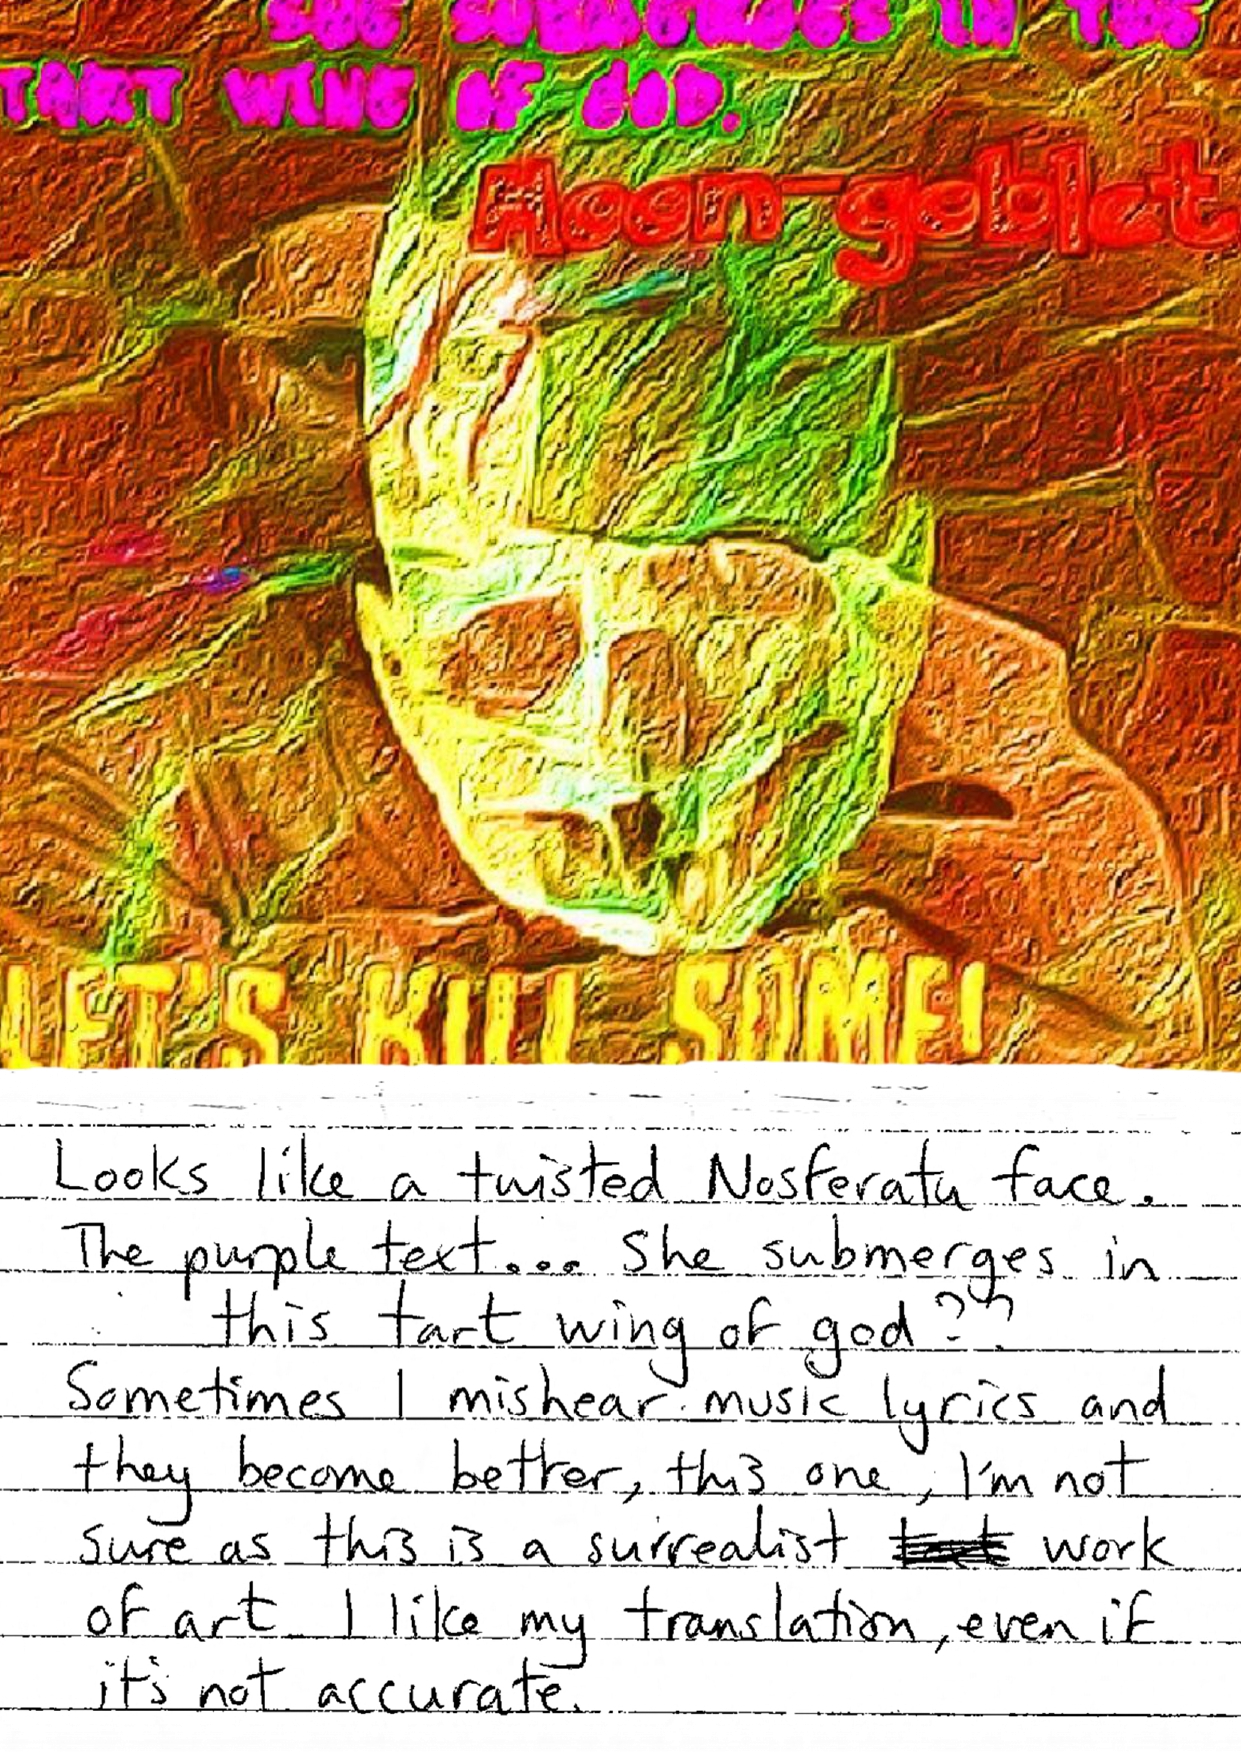 SHE SUBMERGES IN THE
TART WING OF GOD.
Moon-goblet
LET'S KILL SOME!
Looks like a twisted Nosferatu face.
The purple text... She submerges in
this tart wing of god??
Sometimes I mishear music lyrics and
they become better, this one, I'm not
sure as this is a surrealist work
of art. I like my translation, even if
it's not accurate.